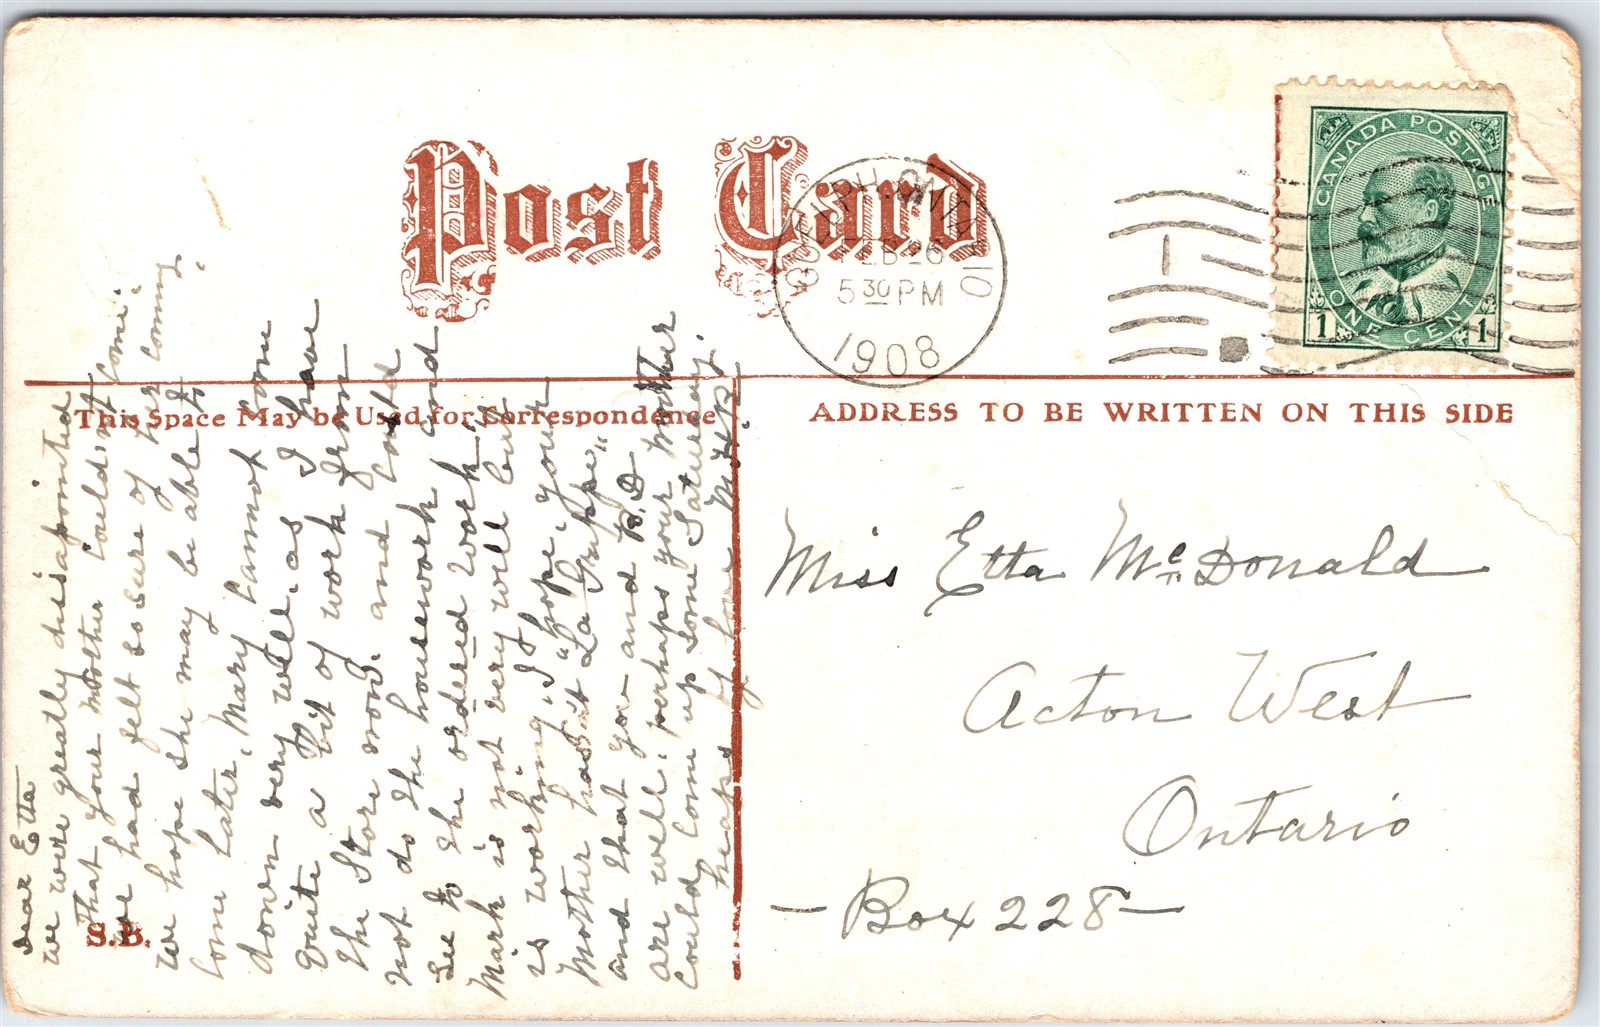 Post Card
GUELPH, ONTARIO
FEB 26
5 30 PM
1908
CANADA POSTAGE
ONE CENT
1 1
This Space May be Used for Correspondence
ADDRESS TO BE WRITTEN ON THIS SIDE
Dear Etta
We were greatly disapointed
that your mother couldn't come.
we had felt so sure of her coming.
We hope she may be able to
come later. Mary cannot come
down very well, as I have
quite a bit of work from
the Store now. and could
not do the housework and
see to the ordered work.
Mark is not very well but
is working. I hope your
Mother hasn't "La Grippe,"
and that you and R.D
are well. perhaps your mother
could come up some Saturday.
heaps of love M.H.P.
S.B.
Miss Etta McDonald
Acton West
Ontario
— Box 228 —